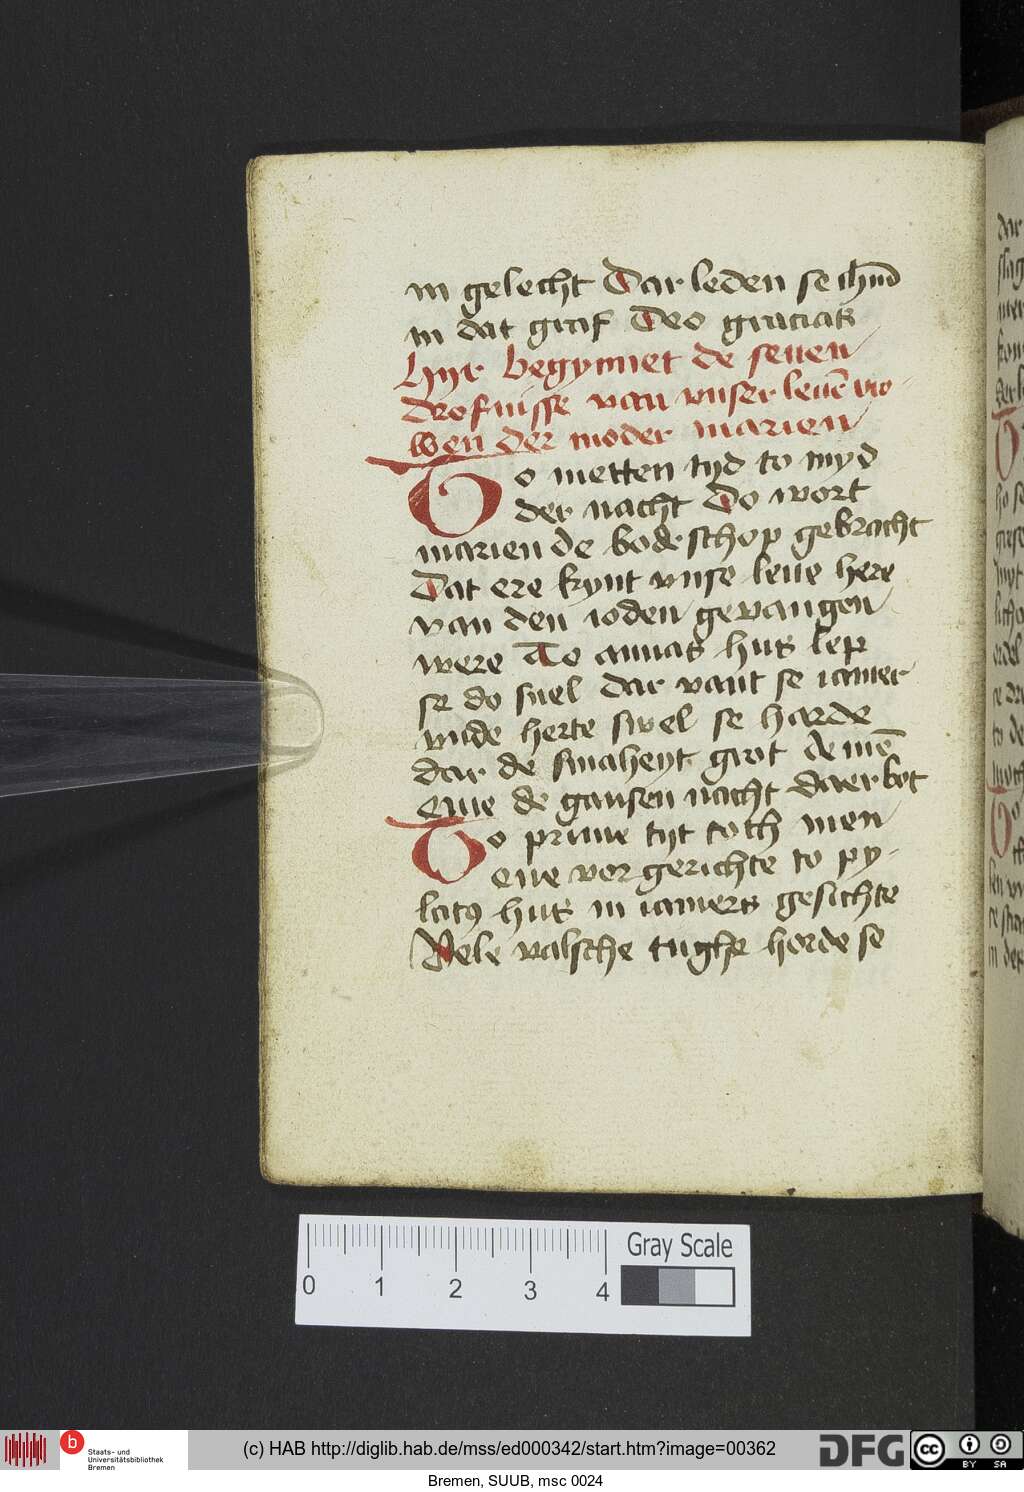 in gelecht Dar leden se ihm̄
in dat graf Deo gracias
Hyr begynnet de seuen
drofnisse van vnser leuē vro-
wen der moder marien
To metten tyd to myd
der nacht Do wort
marien de bodeschop gebracht
Dat ere kynt vnse leue here
van den ioden gevangen
were To annas hus lep
se do snel dar vant se iamer
vnde herte swel se harde
dar de smaheyt grot de mē
eme de gansen nacht daer bot
To prime tyt toch men
eme vor gerichte to py-
latꝯ hus in iamers gesichte
Vele valsche tughe horde se
0 1 2 3 4
Gray Scale
b
Staats- und
Universitätsbibliothek
Bremen
(c) HAB http://diglib.hab.de/mss/ed000342/start.htm?image=00362
DFG
cc BY SA
Bremen, SUUB, msc 0024